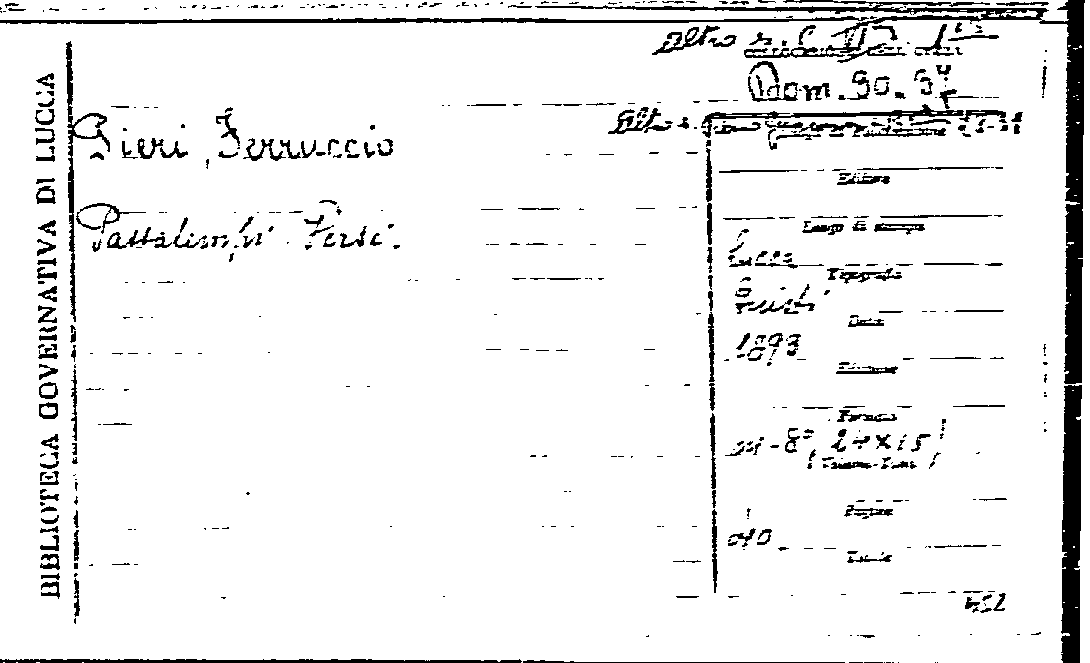 BIBLIOTECA GOVERNATIVA DI LUCCA
Altro s. C. VI 1
Dom. 30. 37
Altro s.
Pieri, Ferruccio
Passatempi. Versi.
Editore
Luogo di stampa
Lucca
Tipografia
Giusti
Data
1893
Volume
Formato
in-8°, (24×15)
Pagine
40
Tavole